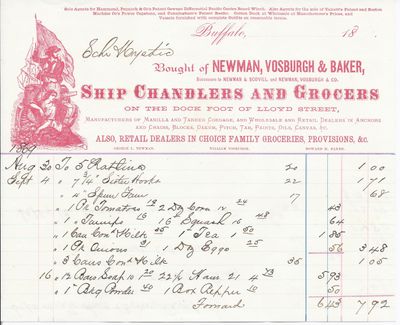 Sole Agents for Hammond, Peacock & Co's Patent Geared Differential Double Geared Steam Winch. Also Agents for the sale of Tuttle's Patent and Boston
Machine Co's Power Capstans, and Manufacturers Patent Roofin. Cotton Duck at Wholesale at Manufacturer's Prices, and
Vessels furnished with complete Outfits on reasonable terms.
Buffalo, 18
Sch Mystic
Bought of NEWMAN, VOSBURGH & BAKER,
Successors to NEWMAN & SCOVILL and NEWMAN, VOSBURGH & CO.
SHIP CHANDLERS AND GROCERS
ON THE DOCK FOOT OF LLOYD STREET,
MANUFACTURERS OF MANILLA AND TARRED CORDAGE, AND WHOLESALE AND RETAIL DEALERS IN ANCHORS
AND CHAINS, BLOCKS, OAKUM, PITCH, TAR, PAINTS, OILS, CANVAS, &c.
ALSO, RETAIL DEALERS IN CHOICE FAMILY GROCERIES, PROVISIONS, &c.
GEORGE L. NEWMAN. WILLIAM VOSBURGH. HOWARD H. BAKER.
1869
Aug 30 To 5 Ratline 20 1 00
Sept 4 " 7 3/4 Sister Hooks 22 1 71
" 4 " Spun Yarn 17 68
" 1 Pk Tomatoes 19 2 Dz Corn 12 24 43
" 1 " Turnips 16 16 " Squash 16 48 64
" 1 Can Cond Milk 35 1 " Tea 1 50 1 85
" 1 Pk Onions 31 1 Dz Eggs 25 56 3 48
" 3 Cans Cond Milk 35 1 05
16 " 12 Bars Soap 10 1 20 22 1/2 Ham 21 4 73 5 93
" 1 " Bkg Powder 40 1 Box Pepper 10 50
Forward 6 43 7 92